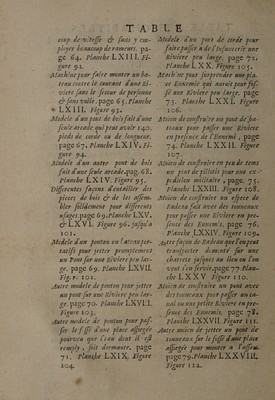 TABLE
coup de vitesse & sans y em-
ployer beaucoup de rameurs. page
64. Planche LXIII. Fi-
gure 92.
Machine pour faire monter un ba-
teau contre le courant d'une Ri-
viere sans le secour de personne
& sans voile. page 65. Planche
LXIII. Figure 93.
Modele d'un pont de bois fait d'une
seule arcade qui peut avoir 240.
pieds de corde ou de longueur.
page 67. Planche LXIV. Fi-
gure 94.
Modele d'un autre pont de bois
fait d'une seule arcade. pag. 68.
Planche LXIV. Figure 95.
Differentes façons d'entailler des
pieces de bois & de les assem-
bler solidement pour differents
usages. page 69. Planche LXV.
& LXVI. Figure 96. jusqu'a
101.
Modele d'un ponton ou l'ar con pre-
tatifs pour jetter promptement
un Pont sur une Riviere peu lar-
ge. page 69. Planche LXVII.
Figure 102.
Autre modele de ponton pour jetter
un pont sur une Riviere peu lar-
ge. page 70. Planche LXVIII.
Figure 103.
Autre modele de ponton pour pas-
ser le fossé d'une place assiegée
pourveu que l'eau dont il est
remply, soit dormante. page
71. Planche LXIX. Figure
104.
Modele d'un pont de corde pour
faire passer à de l'Infanterie une
Riviere peu large. page 72.
Planche LXX. Figure 105.
Machine pour surprendre une pla-
ce Ennemie qui auroit pour fos-
sé une Riviere peu large, page
73. Planche LXXI. Figure
106.
Moien de construire un pont de ba-
teaux pour passer une Riviere
en presence de l'Ennemi, page
74. Planche LXXII. Figure
107.
Moien de construire en peu de tems
un pont de pilotis pour une ex-
pedition militaire, page 75.
Planche LXXIII. Figure 108.
Moien de construire un espece de
Radeau fait avec des tonneaux
pour passer une Riviere en pre-
sence des Ennemis, page 76.
Planche LXXIV. Figure 109.
Autre façon de Radeau que l'on peut
transporter dessus sur une
charrete jusques au lieu ou l'on
veut s'en servir. page 77. Plan-
che LXXV. Figure 110.
Moien de construire un pont avec
des tonneaux pour passer un ca-
nal ou une petite Riviere en pre-
sence des Ennemis, page 78.
Planche LXXVII. Figure 111.
Autre moien de jetter un pont de
tonneaux sur le fossé d'une place
assiegée pour monter a l'assaut.
page 79. Planche LXXVIII.
Figure 112.